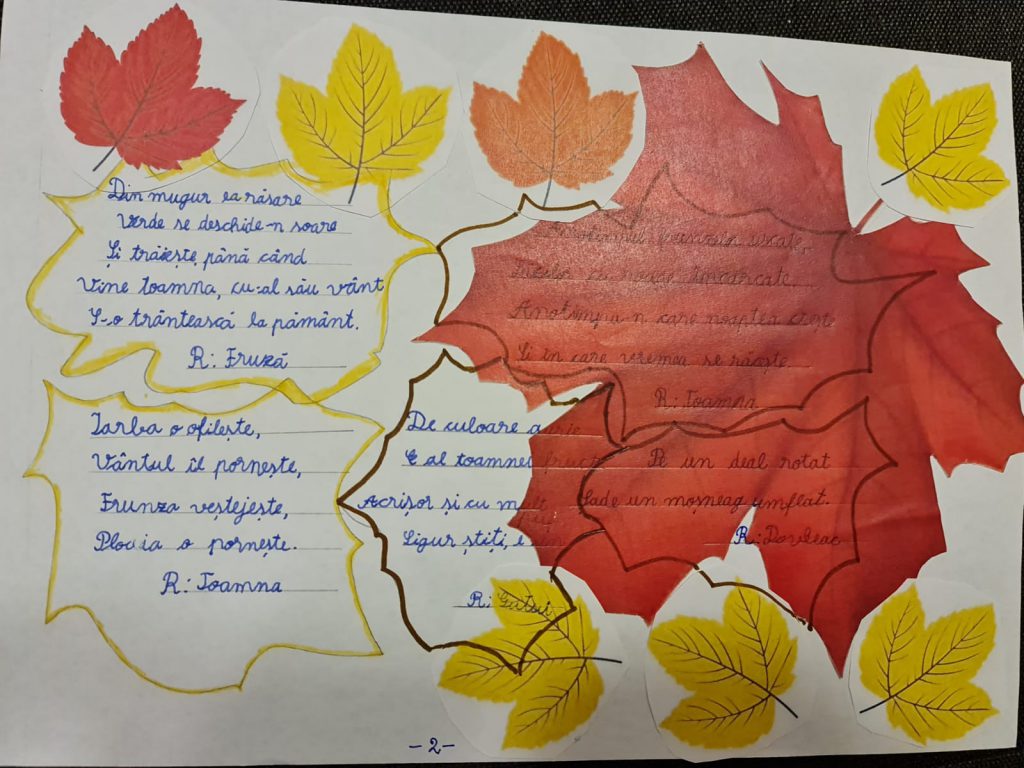 Din mugur ea răsare
Verde se deschide-n soare
Și trăiește până când
Vine toamna, cu-al său vânt
S-o trântească la pământ.
R: Fruză
frunzelor uscate,
cu roade încărcate,
Anotimpu-n care noaptea crește
Și în care vremea se răcește
R: Toamna
Iarba o ofilește,
Vântul îl pornește,
Frunza veștejește,
Ploaia o pornește.
R: Toamna
De culoare aurie
E al toamnei fruct
Acrișor și cu mult puf
Sigur știți, e din
R: Gutui
Pe un deal rotat
Șade un moșneag umflat.
R: Dovleac
-2-